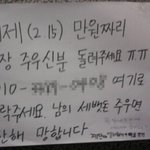 제 (2 15) 만원짜리
장 주우신분 돌려주세요 ㅠㅠ
10- 여기로
락주세요. 남의 세뱃돈 주우면
산해 망합니다